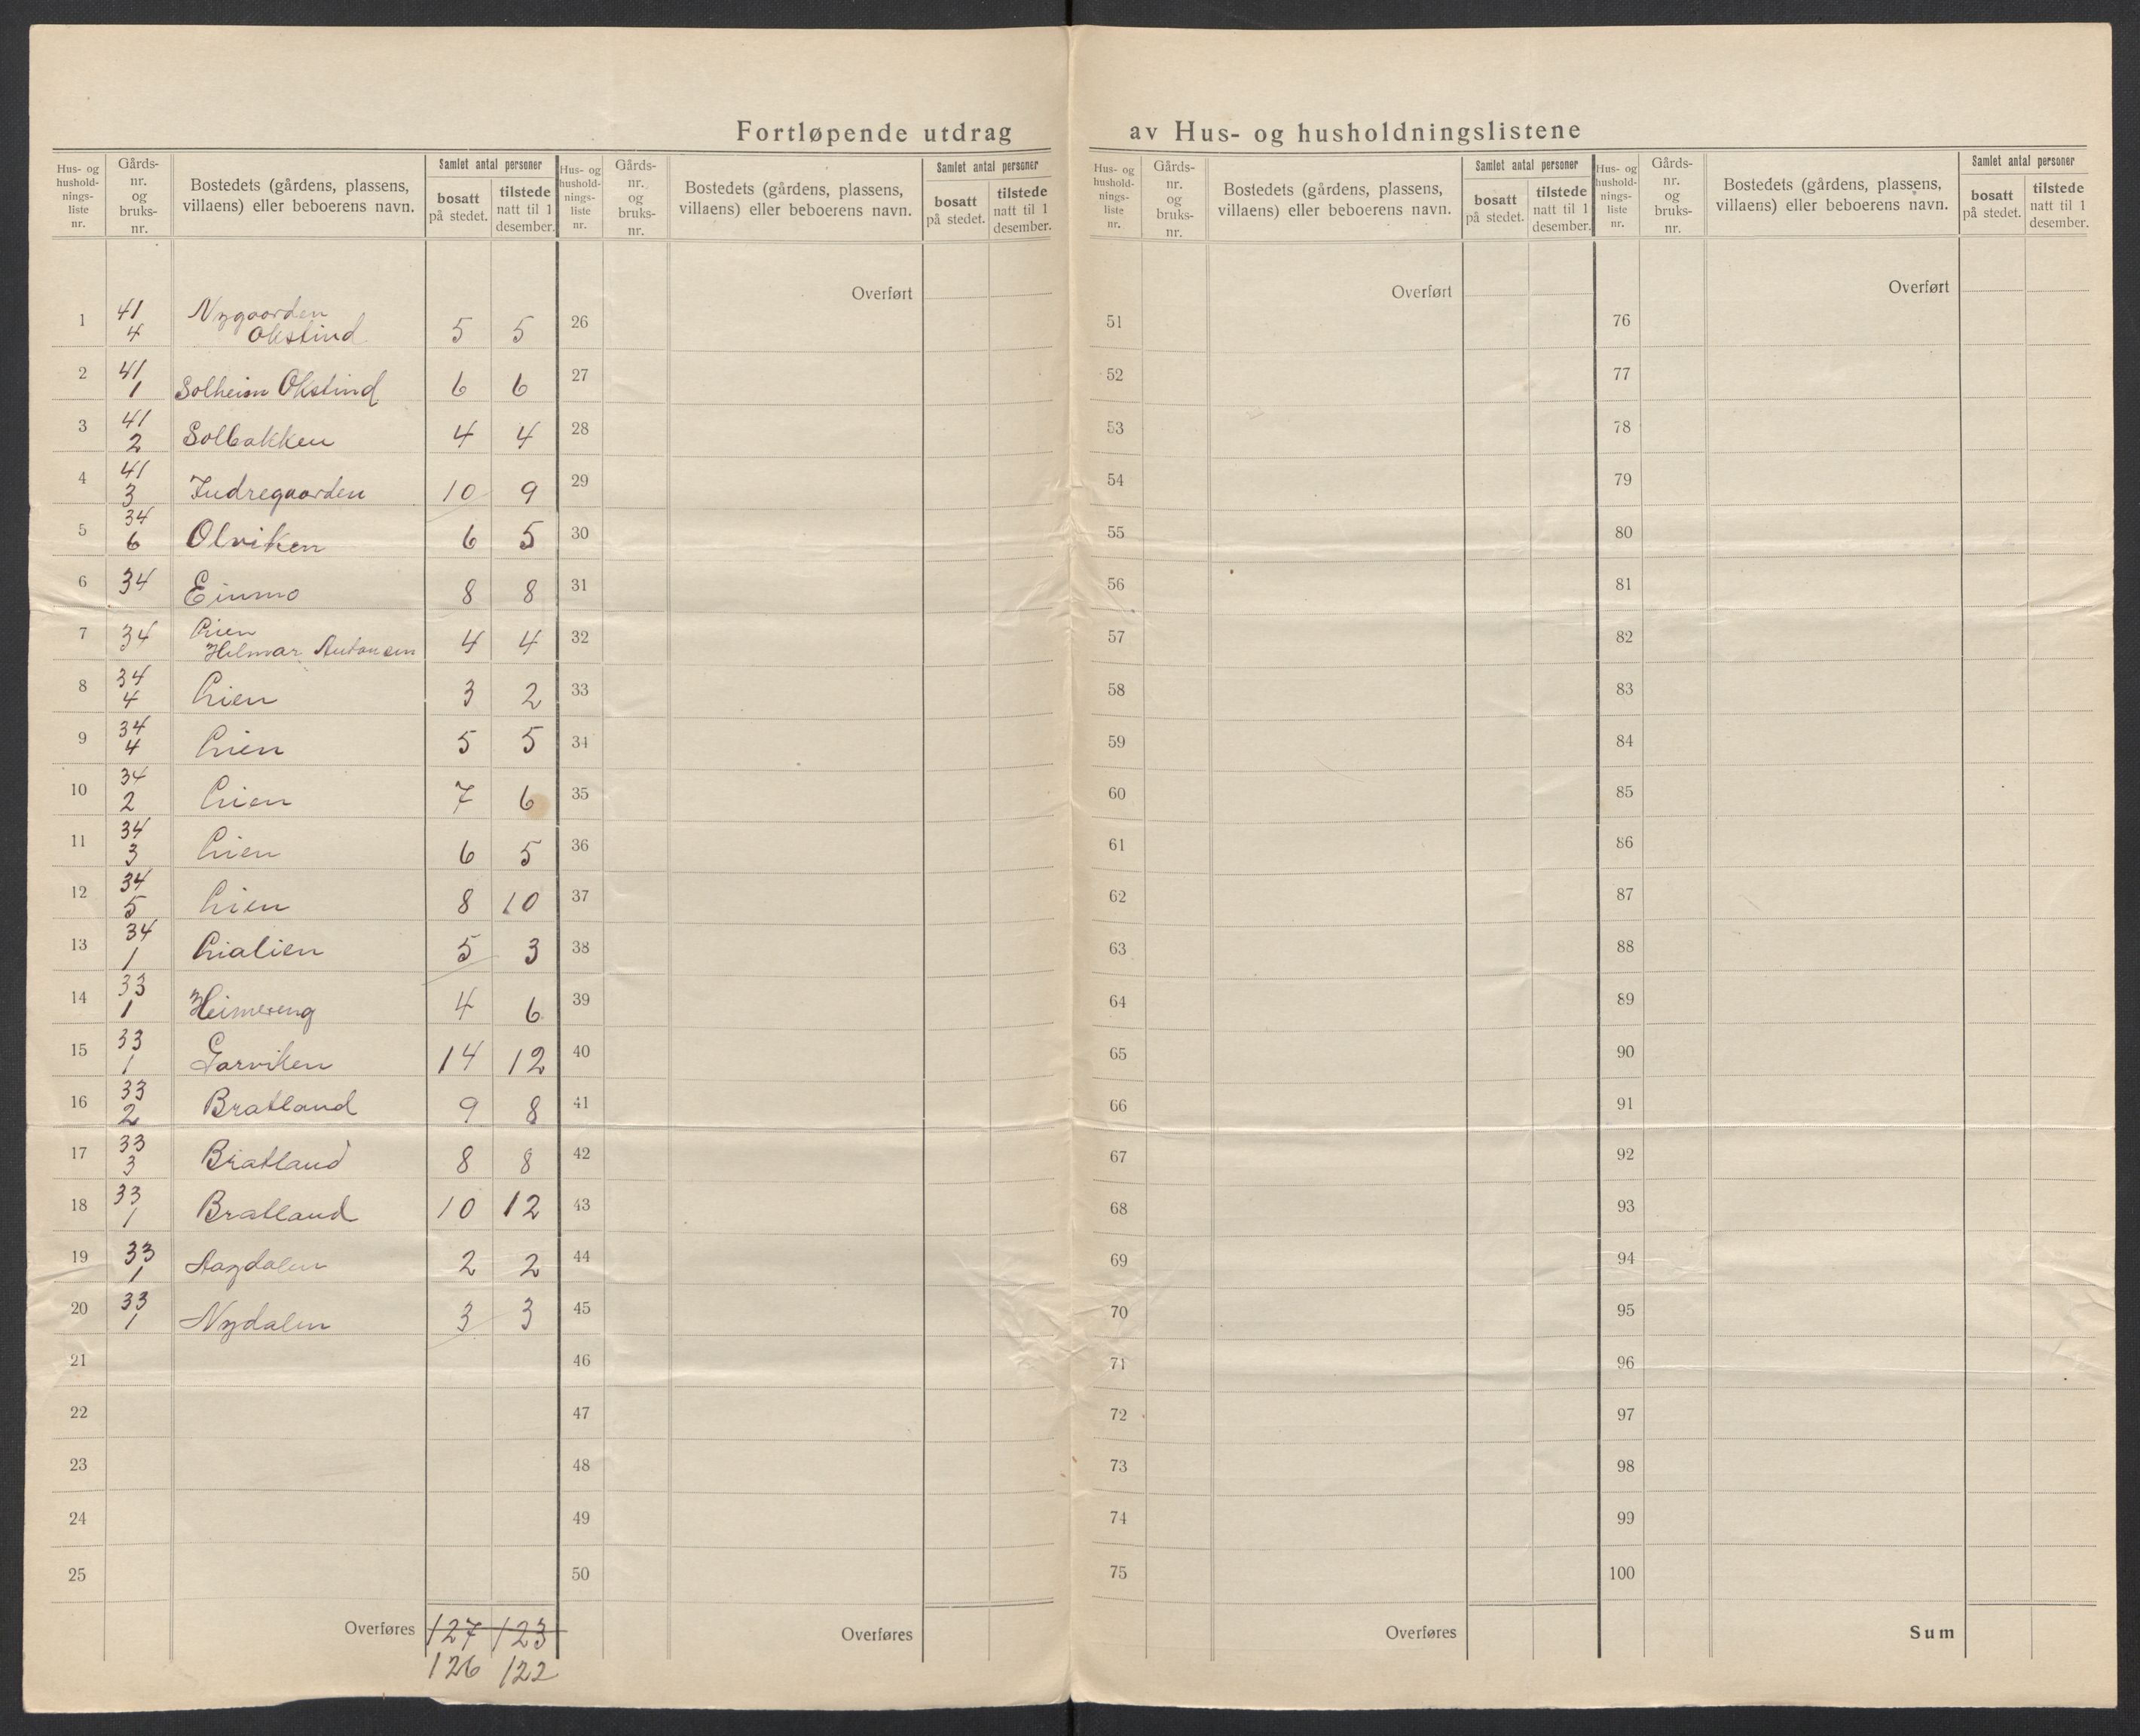 Fortløpende utdrag av Hus- og husholdningslistene
Hus- og hushold-nings-liste nr. | Gårds-nr. og bruks-nr. | Bostedets (gårdens, plassens, villaens) eller beboerens navn. | Samlet antal personer | bosatt på stedet. | tilstede natt til 1 desember.
Hus- og hushold-nings-liste nr. | Gårds-nr. og bruks-nr. | Bostedets (gårdens, plassens, villaens) eller beboerens navn. | Samlet antal personer | bosatt på stedet. | tilstede natt til 1 desember.
Hus- og hushold-nings-liste nr. | Gårds-nr. og bruks-nr. | Bostedets (gårdens, plassens, villaens) eller beboerens navn. | Samlet antal personer | bosatt på stedet. | tilstede natt til 1 desember.
Hus- og hushold-nings-liste nr. | Gårds-nr. og bruks-nr. | Bostedets (gårdens, plassens, villaens) eller beboerens navn. | Samlet antal personer | bosatt på stedet. | tilstede natt til 1 desember.
Overført Overført Overført
1 41 4 Nygaarden Okstind 5 5 26 51 76
2 41 1 Solheim Okstind 6 6 27 52 77
3 41 2 Solbakken 4 4 28 53 78
4 41 3 Indregaarden 10 9 29 54 79
5 34 6 Olviken 6 5 30 55 80
6 34 Einmo 8 8 31 56 81
7 34 Lien Hilmar Antonsen 4 4 32 57 82
8 34 4 Lien 3 2 33 58 83
9 34 4 Lien 5 5 34 59 84
10 34 2 Lien 7 6 35 60 85
11 34 3 Lien 6 5 36 61 86
12 34 5 Lien 8 10 37 62 87
13 34 1 Lialien 5 3 38 63 88
14 33 1 Heimereng 4 6 39 64 89
15 33 1 Garviken 14 12 40 65 90
16 33 2 Bratland 9 8 41 66 91
17 33 3 Bratland 8 8 42 67 92
18 33 1 Bratland 10 12 43 68 93
19 33 1 2 2 44 69 94
20 33 1 Nydalen 3 3 45 70 95
21 46 71 96
22 47 72 97
23 48 73 98
24 49 74 99
25 50 75 100
Overføres 127 123 Overføres Overføres Sum
126 122